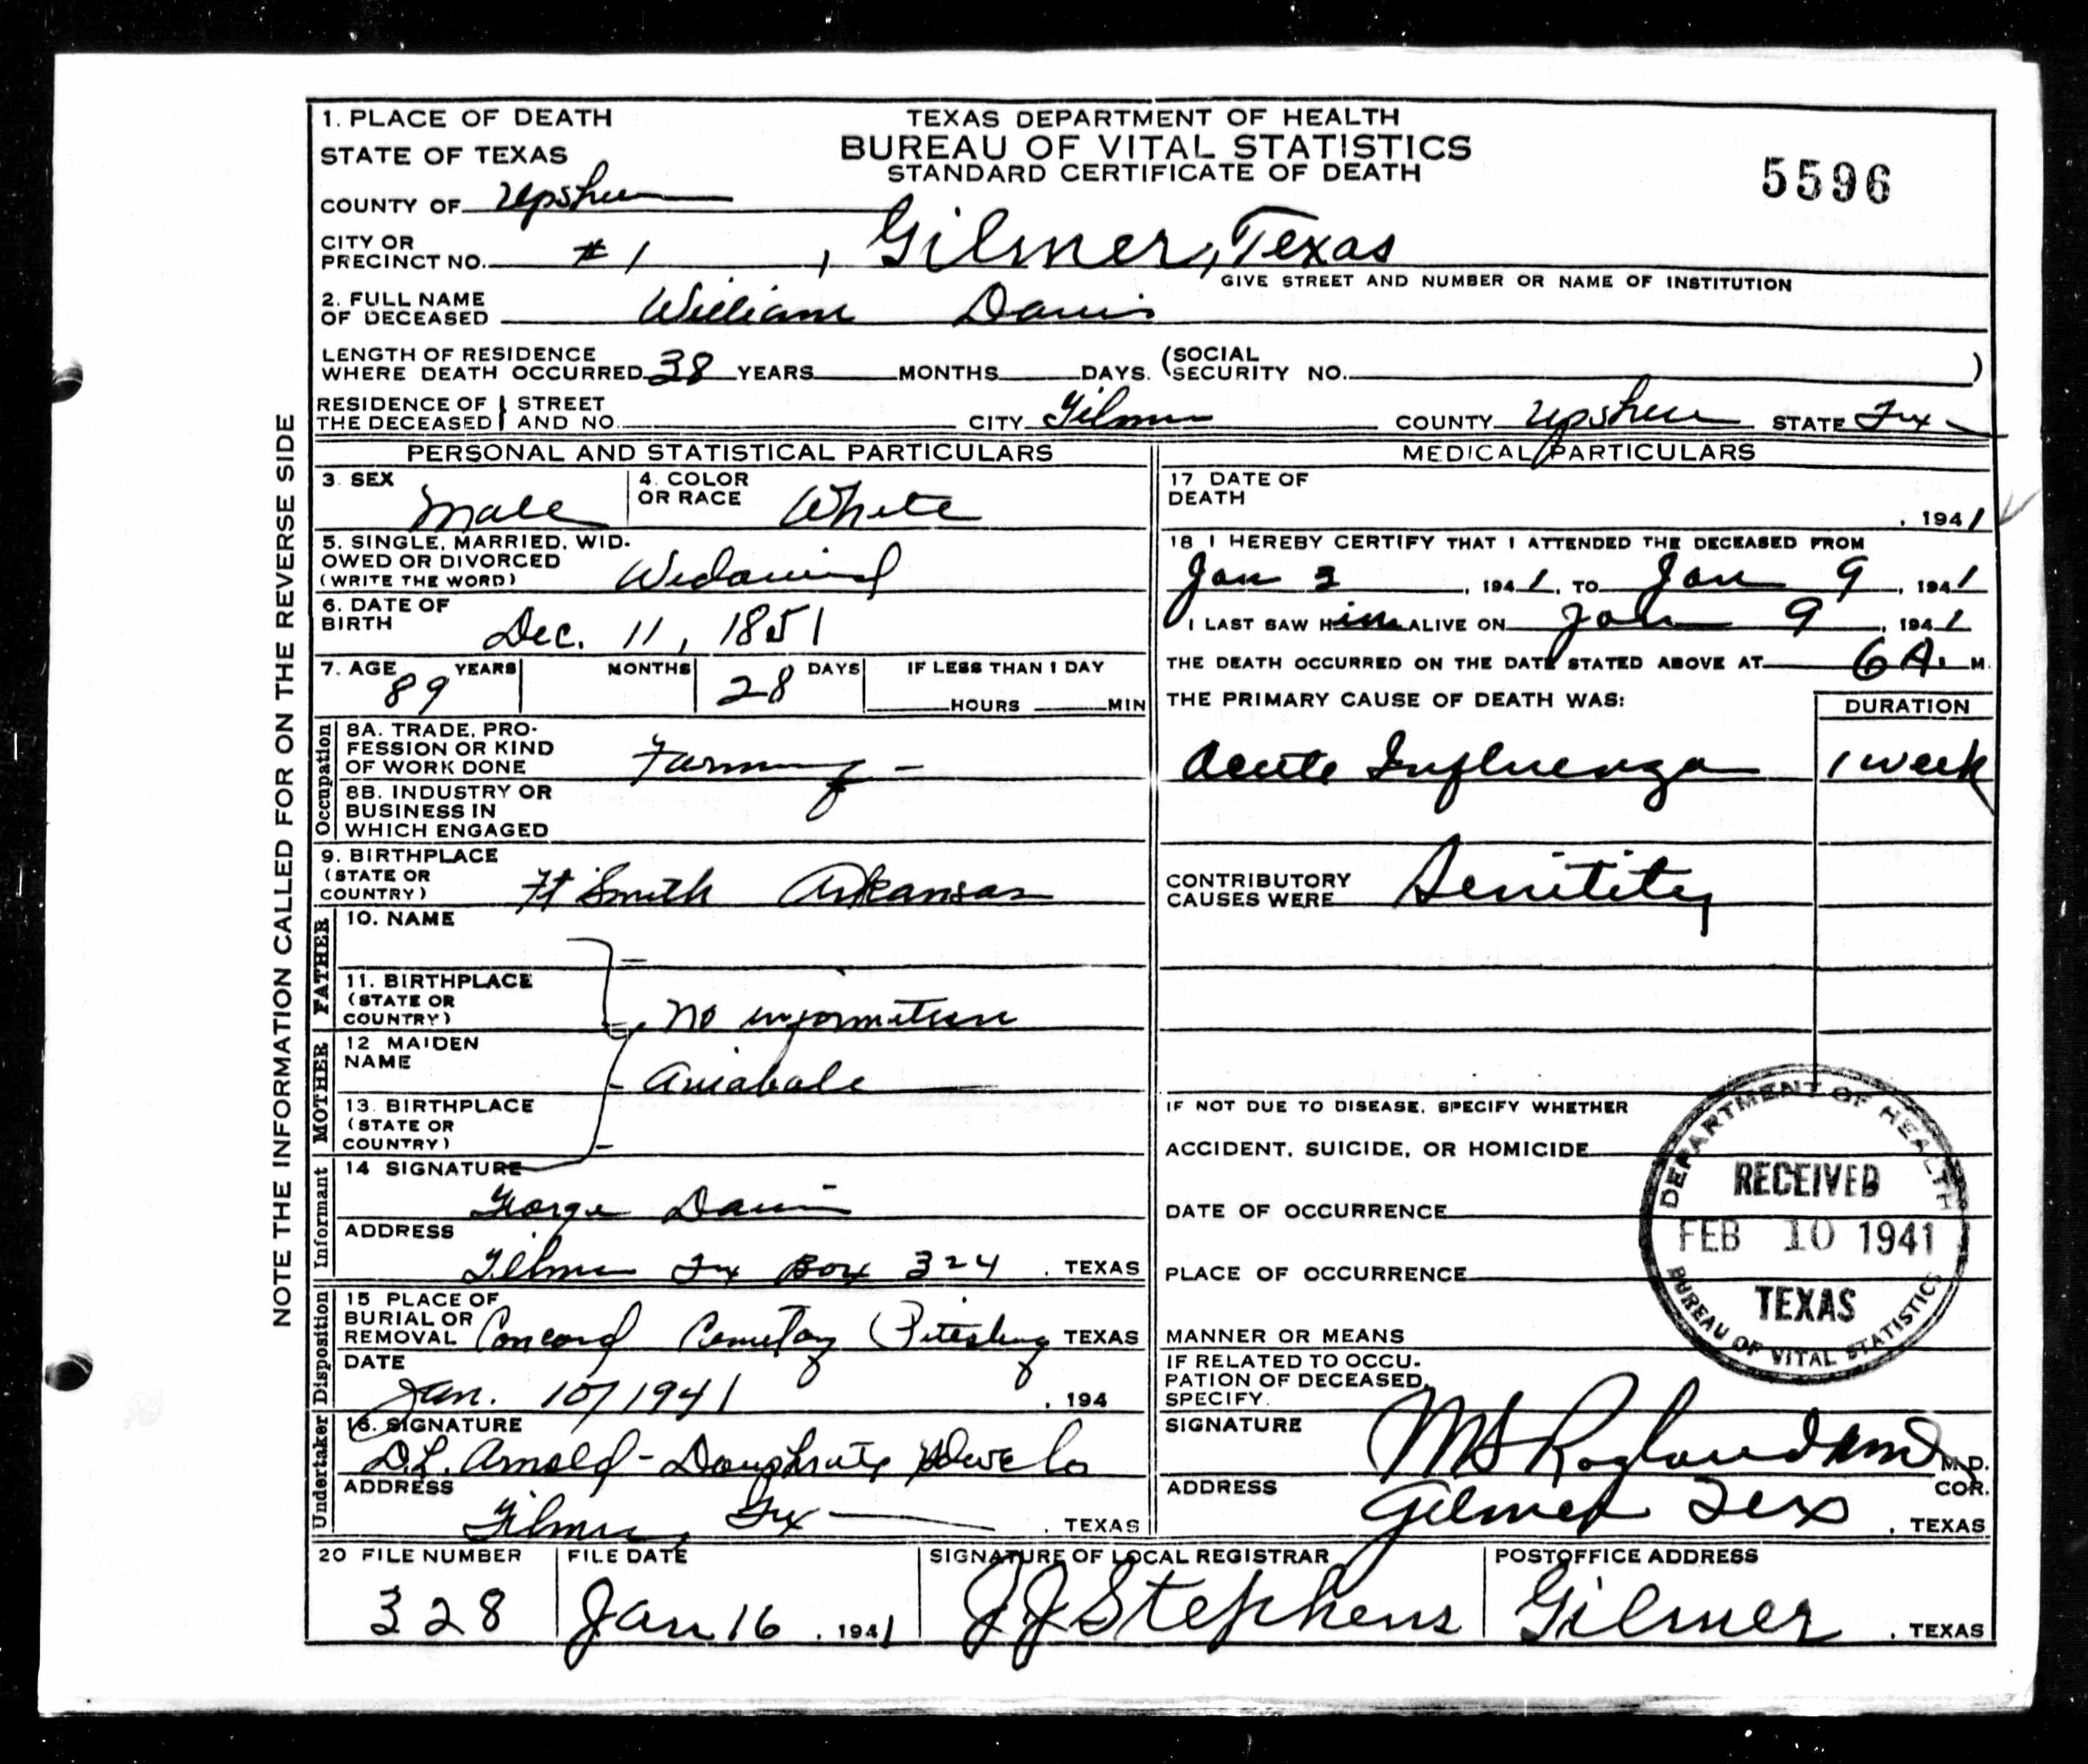 1. PLACE OF DEATH
STATE OF TEXAS
COUNTY OF Upshur
CITY OR PRECINCT NO. #1, Gilmer, Texas
TEXAS DEPARTMENT OF HEALTH
BUREAU OF VITAL STATISTICS
STANDARD CERTIFICATE OF DEATH
5596
GIVE STREET AND NUMBER OR NAME OF INSTITUTION
2. FULL NAME OF DECEASED William Davis
LENGTH OF RESIDENCE WHERE DEATH OCCURRED 38 YEARS MONTHS DAYS. (SOCIAL SECURITY NO. )
RESIDENCE OF THE DECEASED } STREET AND NO. CITY Gilmer COUNTY Upshur STATE Tex
NOTE THE INFORMATION CALLED FOR ON THE REVERSE SIDE
PERSONAL AND STATISTICAL PARTICULARS
3. SEX Male
4. COLOR OR RACE White
5. SINGLE, MARRIED, WIDOWED OR DIVORCED (WRITE THE WORD) Widowed
6. DATE OF BIRTH Dec. 11, 1851
7. AGE 89 YEARS MONTHS 28 DAYS IF LESS THAN 1 DAY HOURS MIN
Occupation
8A. TRADE, PROFESSION OR KIND OF WORK DONE Farming -
8B. INDUSTRY OR BUSINESS IN WHICH ENGAGED
9. BIRTHPLACE (STATE OR COUNTRY) Ft Smith Arkansas
FATHER
10. NAME
11. BIRTHPLACE (STATE OR COUNTRY) No information
MOTHER
12 MAIDEN NAME
13. BIRTHPLACE (STATE OR COUNTRY)
Informant
14 SIGNATURE George Davis
ADDRESS Gilmer Tex Box 324 . TEXAS
Disposition
15 PLACE OF BURIAL OR REMOVAL Concord Cemetery Pittsburg TEXAS
DATE Jan. 10/1941 . 194
Undertaker
16. SIGNATURE D.L. Arnold -
ADDRESS Gilmer, Tex . TEXAS
MEDICAL PARTICULARS
17 DATE OF DEATH , 1941
18 I HEREBY CERTIFY THAT I ATTENDED THE DECEASED FROM
Jan 2, 1941, TO Jan 9, 1941
I LAST SAW Him ALIVE ON Jan 9, 1941
THE DEATH OCCURRED ON THE DATE STATED ABOVE AT 6 A. M.
THE PRIMARY CAUSE OF DEATH WAS: DURATION
Acute Influenza 1 week
CONTRIBUTORY CAUSES WERE Senility
IF NOT DUE TO DISEASE, SPECIFY WHETHER
ACCIDENT, SUICIDE, OR HOMICIDE
DATE OF OCCURRENCE
PLACE OF OCCURRENCE
MANNER OR MEANS
IF RELATED TO OCCUPATION OF DECEASED, SPECIFY.
DEPARTMENT OF HEALTH
RECEIVED
FEB 10 1941
TEXAS
BUREAU OF VITAL STATISTICS
SIGNATURE M S Ragland MD M.D. COR.
ADDRESS Gilmer Tex , TEXAS
20 FILE NUMBER 328
FILE DATE Jan 16, 1941
SIGNATURE OF LOCAL REGISTRAR J J Stephens
POSTOFFICE ADDRESS Gilmer , TEXAS